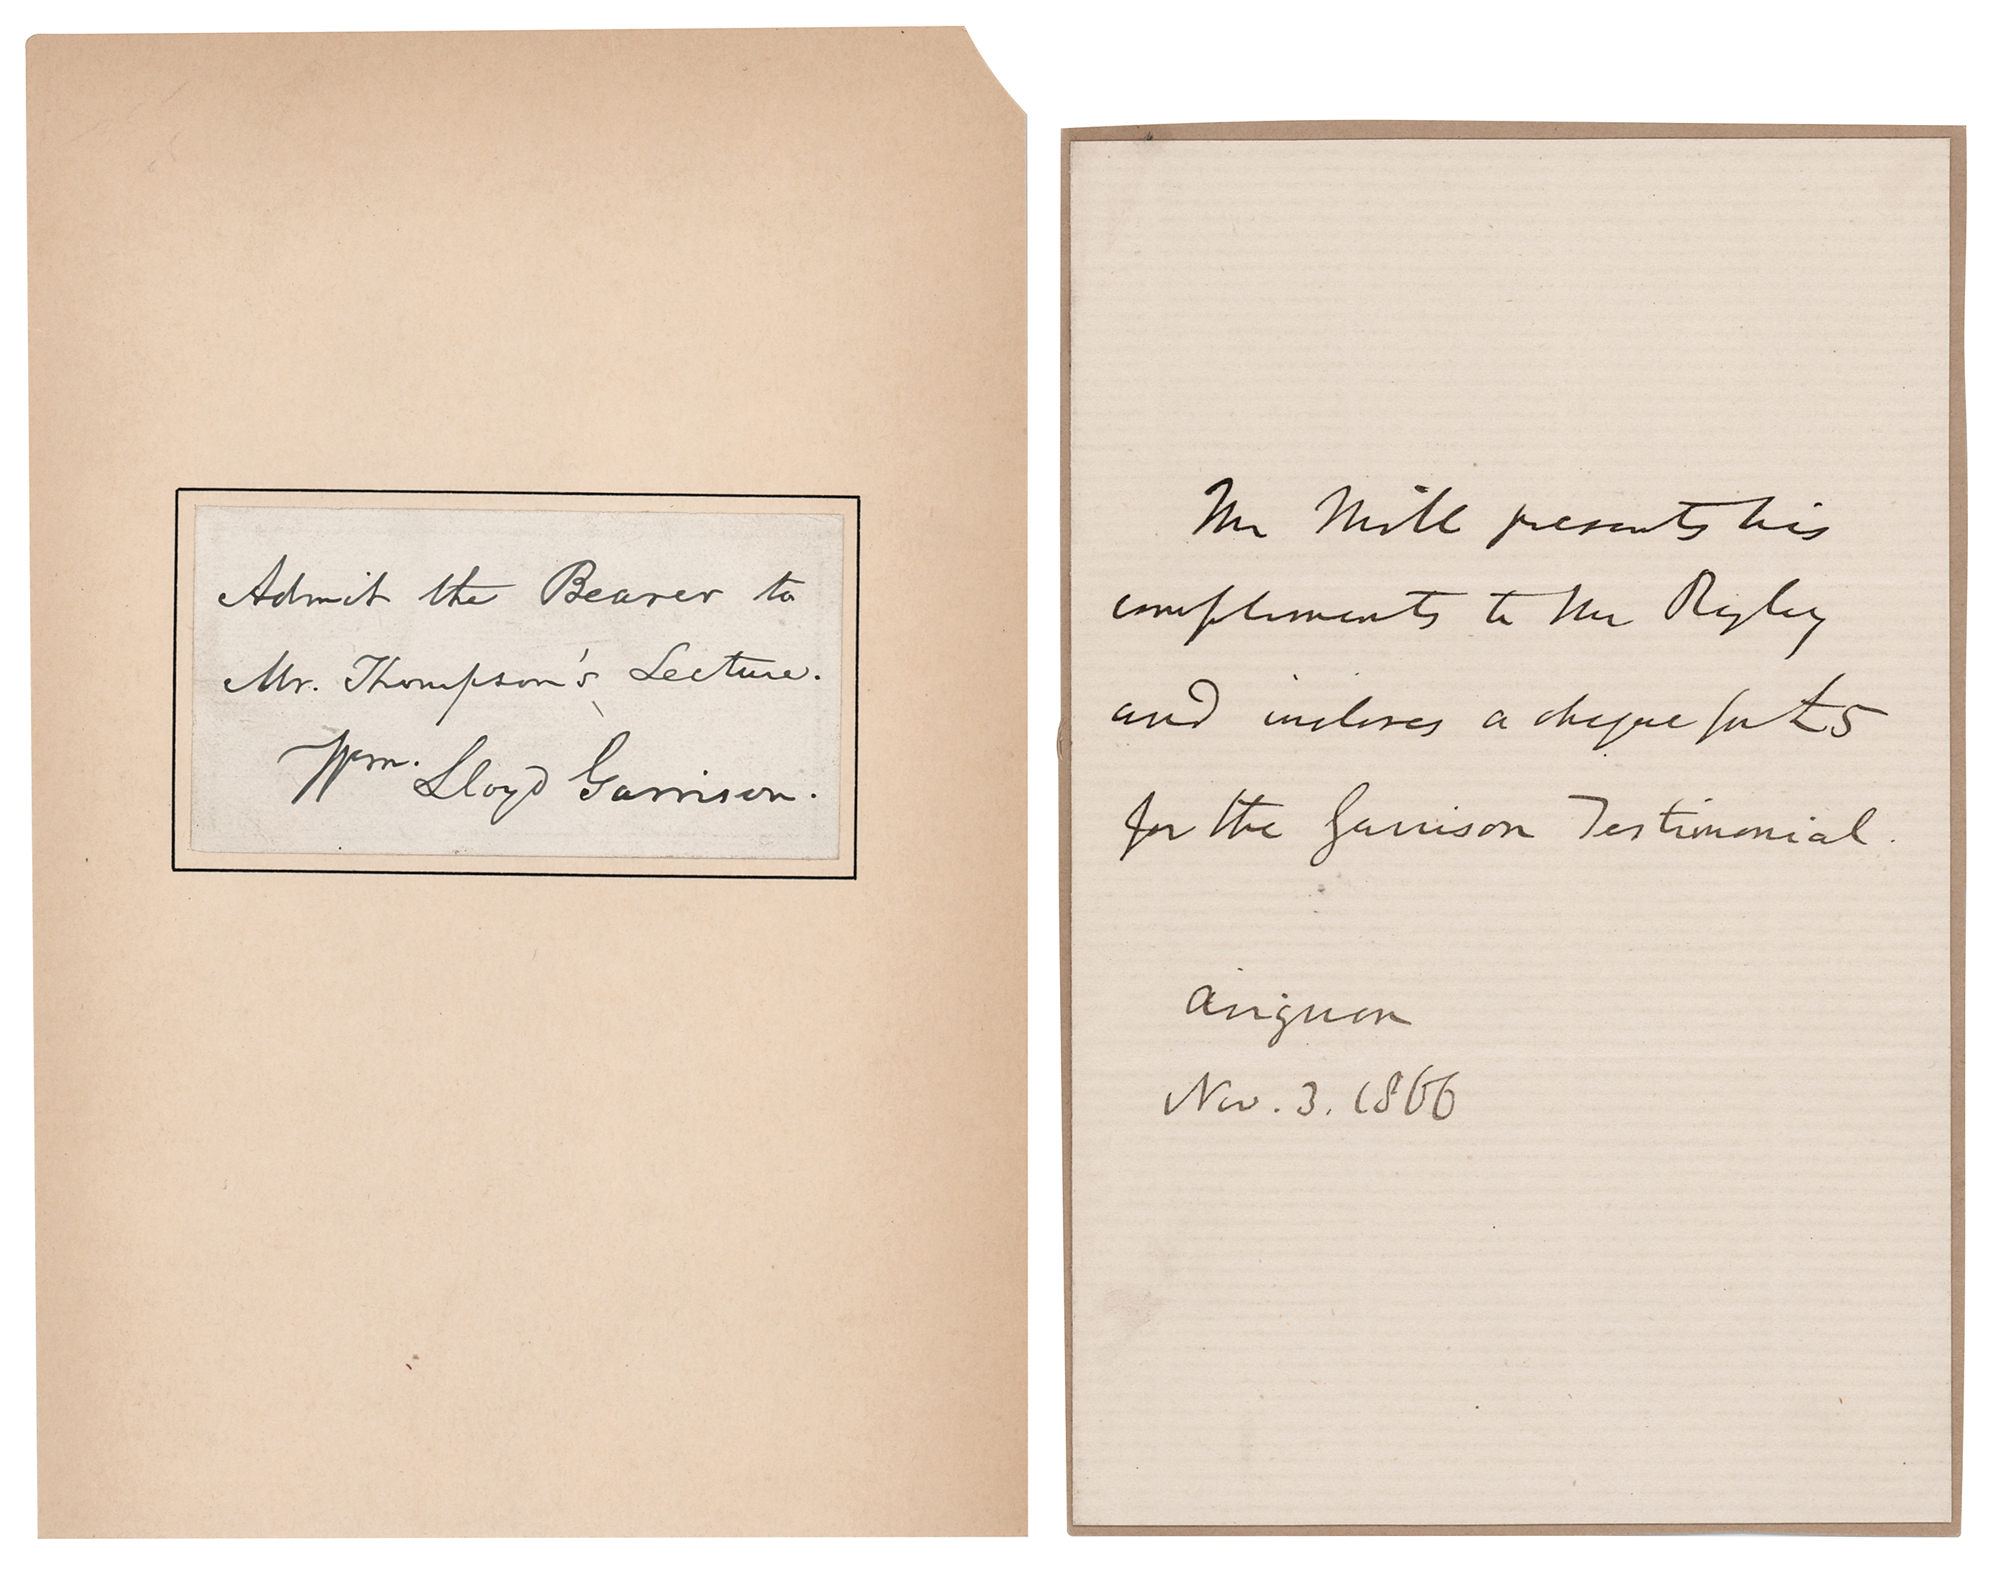 Admit the Bearer to
Mr. Thompson's Lecture.
Wm. Lloyd Garrison.
Mr Mill presents his
compliments to Mr Rigley
and incloses a cheque for £5
for the Garrison Testimonial.
Avignon
Nov. 3. 1866